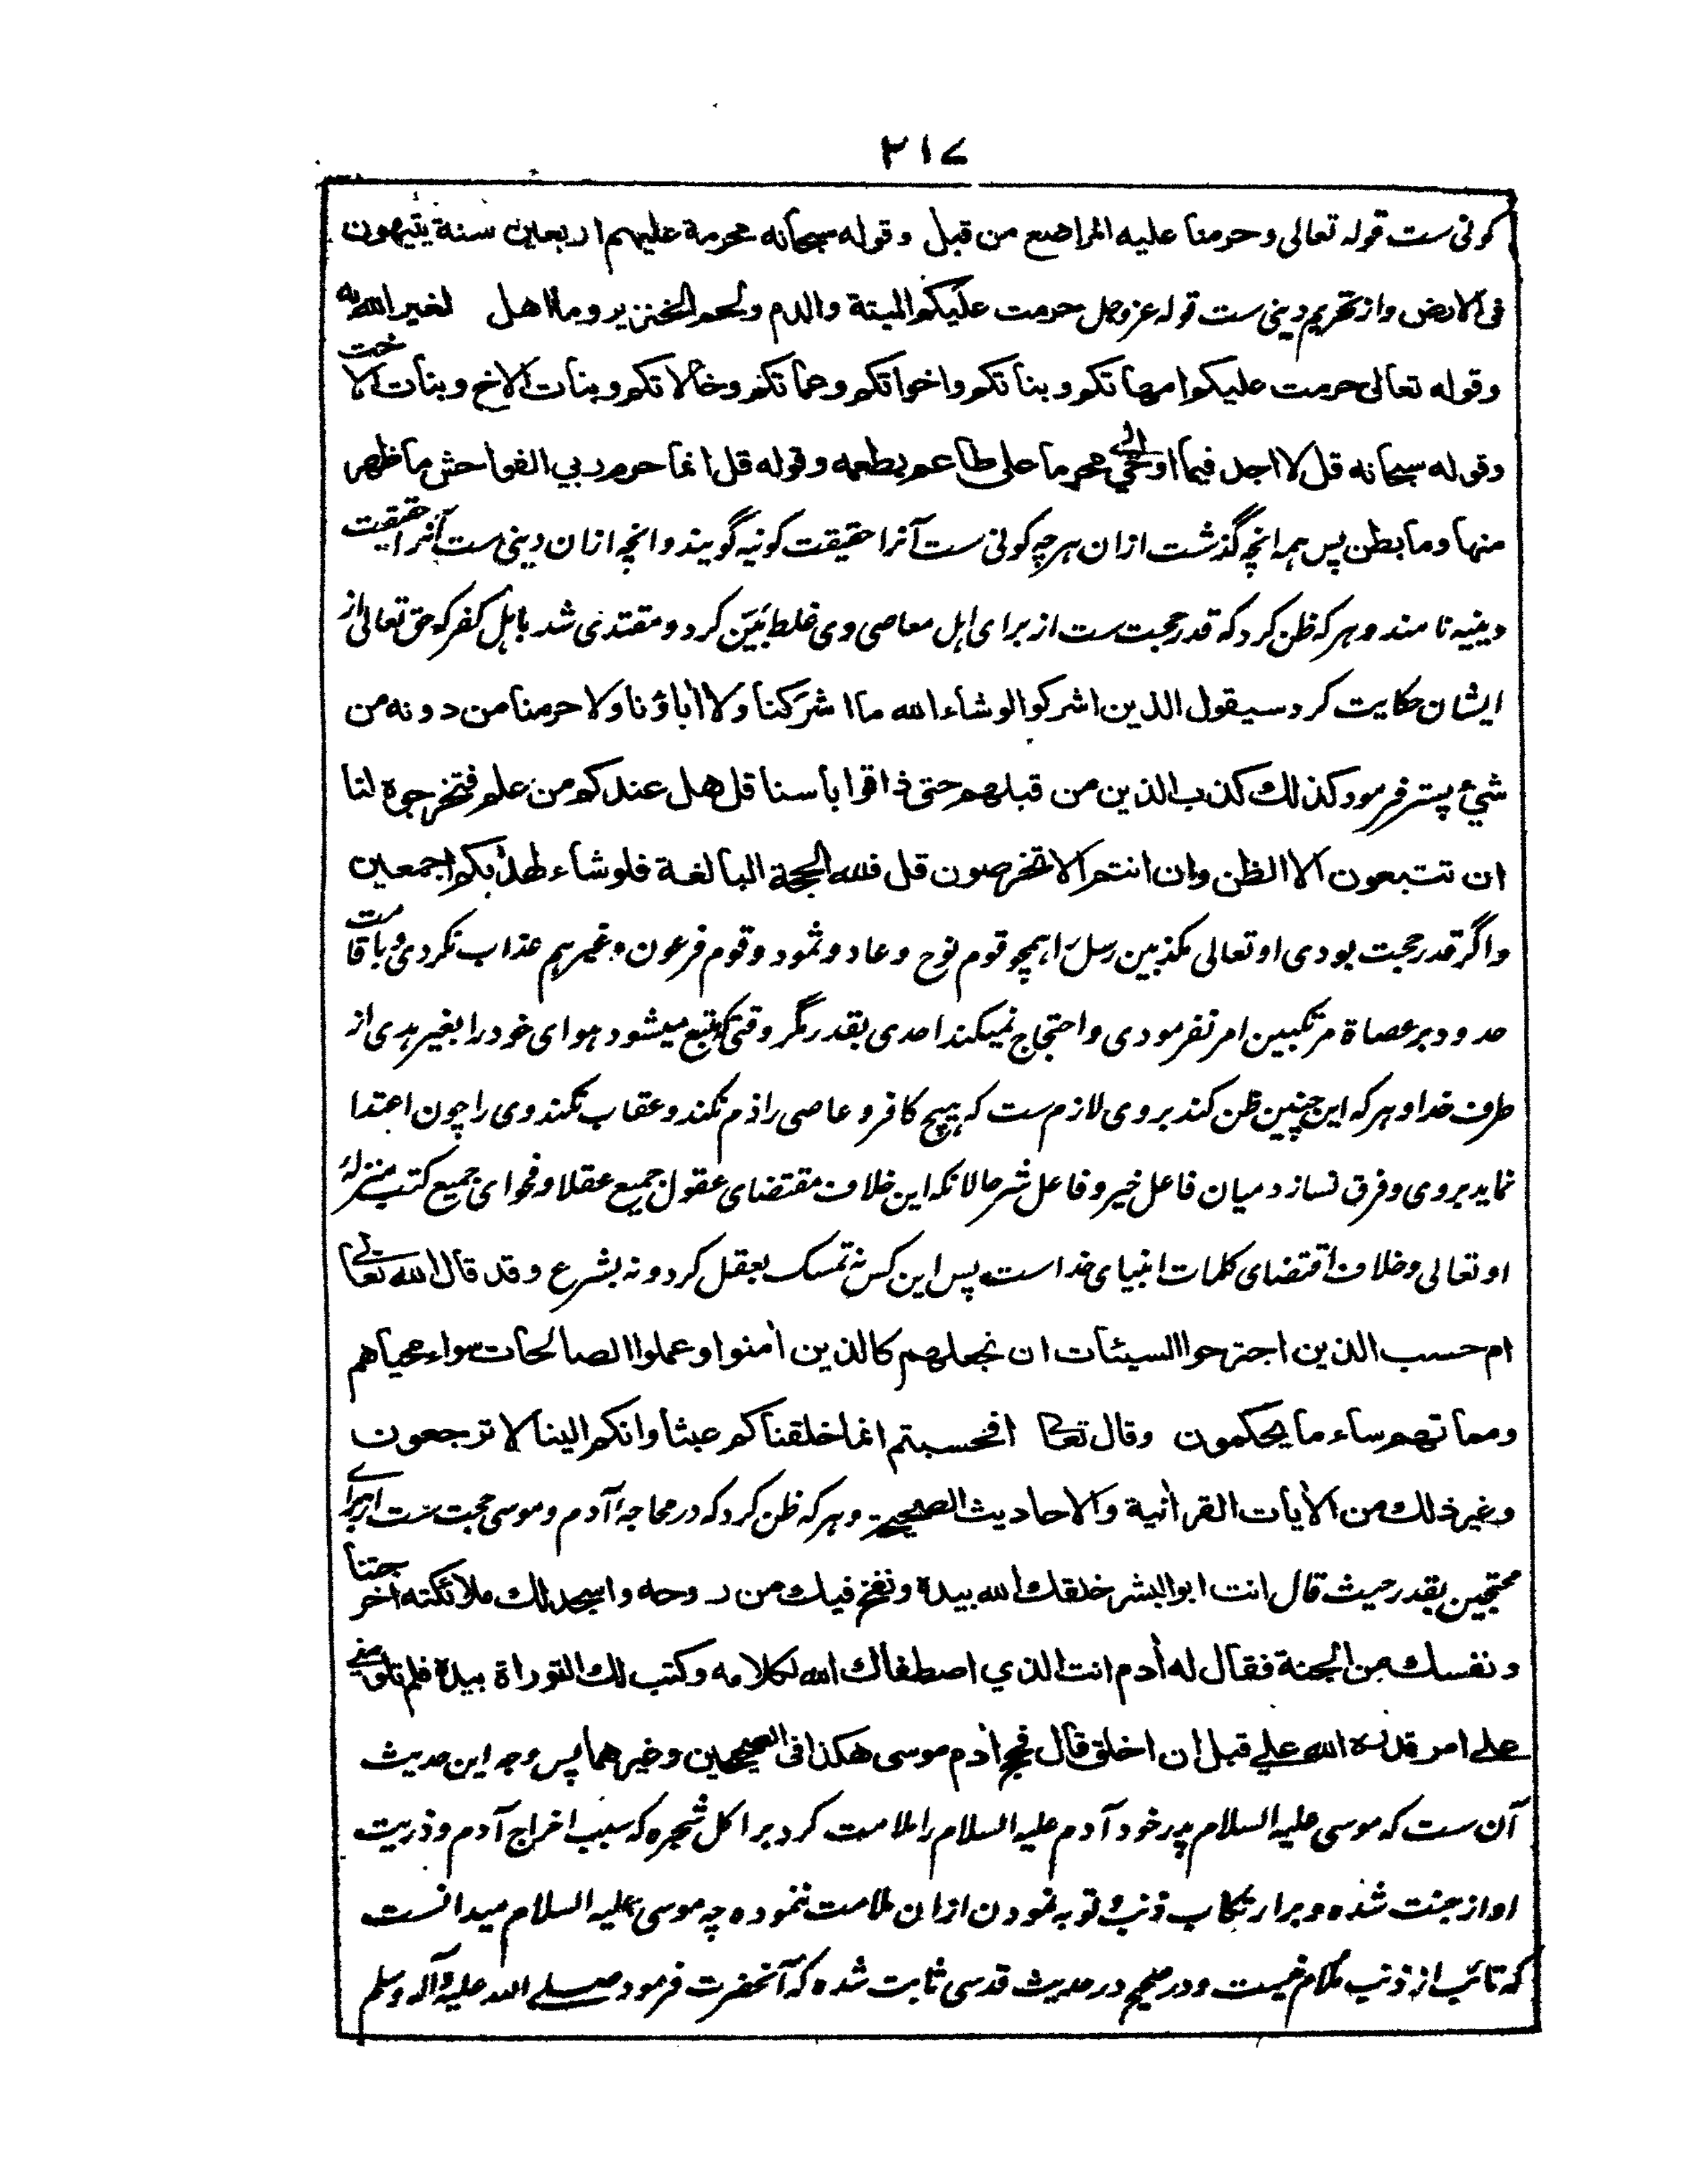 ۳۱۷
کونی ست قوله تعالی و حرمنا علیه المراضع من قبل وقوله سبحانه محرمة علیهم اربعین سنة یتیهون
فی الارض و از تحریم دینی ست قوله عز وجل حرمت علیکم المیتة والدم ولحم الخنزیر وما اهل لغیر الله به
وقوله تعالی حرمت علیکم امهاتکم وبناتکم واخواتکم وعماتکم وخالاتکم وبنات الاخ وبنات الاخت
وقوله سبحانه قل لا اجد فیما اوحی الی محرما علی طاعم یطعمه وقوله قل انما حرم ربی الفواحش ما ظهر
منها وما بطن پس همه انچه گذشت ازان هر چه کونی ست آنرا حقیقت کونیه گویند و انچه ازان دینی ست آنرا حقیقت
دینیه نامند و هر که ظن کرد که قدر حجت ست از برای اهل معاصی وی غلط بیّن کرد و مقتدی شد باهل کفر که حق تعالی از
ایشان حکایت کرد سیقول الذین اشرکوا لو شاء الله ما اشرکنا ولا اباؤنا ولا حرمنا من دونه من
شیٔ پستر فرمود کذلك کذب الذین من قبلهم حتی ذاقوا باسنا قل هل عندکم من علم فتخرجوه لنا
ان تتبعون الا الظن وان انتم الا تخرصون قل فلله الحجة البالغة فلو شاء لهدٰبکم اجمعین
و اگر قدر حجت بودی او تعالی مکذبین رسل را همچو قوم نوح و عاد و ثمود و قوم فرعون وغیرهم عذاب نکردی و باقامت
حدود بر عصاة مرتکبین امر نفرمودی و احتجاج نمیکند احدی بقدر مگر وقتیکه متبع میشود هوای خود را بغیر هدی از
طرف خدا و هر که این چنین ظن کند بر وی لازم ست که هیچ کافر و عاصی را ذم نکند و عقاب نکند وی را چون اعتدا
نماید بر وی و فرق نسازد میان فاعل خیر و فاعل شر حالانکه این خلاف مقتضای عقول جمیع عقلا و فحوای جمیع کتب منزلهٔ
او تعالی و خلاف اقتضای کلمات انبیای خدا ست پس این کس نه تمسک بعقل کرد و نه بشرع وقد قال الله تعالی
ام حسب الذین اجترحوا السیئات ان نجعلهم کالذین اٰمنوا وعملوا الصالحات سواء محیاهم
ومماتهم ساء ما یحکمون وقال تعالی افحسبتم انما خلقناکم عبثا وانکم الینا لا ترجعون
وغیر ذلك من الاٰیات القراٰنیة والاحادیث الصحیحة و هر که ظن کرد که در محاجهٔ آدم و موسی حجت ست از برای
محتجین بقدر حیث قال انت ابو البشر خلقك الله بیده ونفخ فیك من روحه واسجد لك ملائکته اخرجتنا
ونفسك من الجنة فقال له اٰدم انت الذي اصطفاك الله لکلامه وکتب لك التوراة بیده فلم تلومنی
علی امر قدره الله علی قبل ان اخلق قال فحج اٰدم موسی هکذا فی الصحیحین وغیرهما پس وجه این حدیث
آن ست که موسی علیه السلام پدر خود آدم علیه السلام را ملامت کرد بر اکل شجره که سبب اخراج آدم و ذریت
او از جنت شده و بر ارتکاب ذنب و توبه نمودن ازان ملامت ننموده چه موسی علیه السلام میدانست
که تائب از ذنب ملام نیست و در صحیح در حدیث قدسی ثابت شده که آنحضرت فرمود صلی الله علیه و آله وسلم